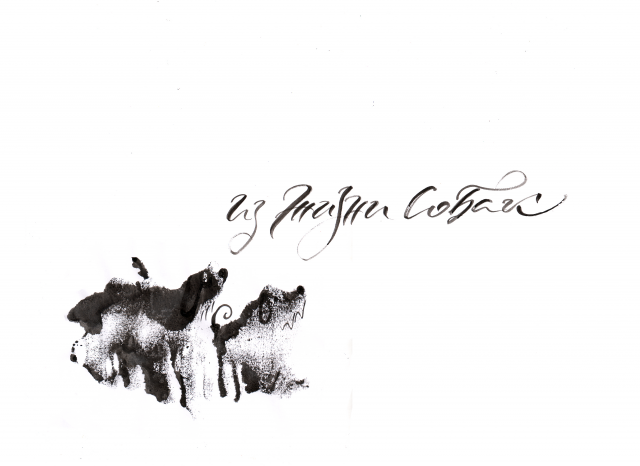 из жизни собак